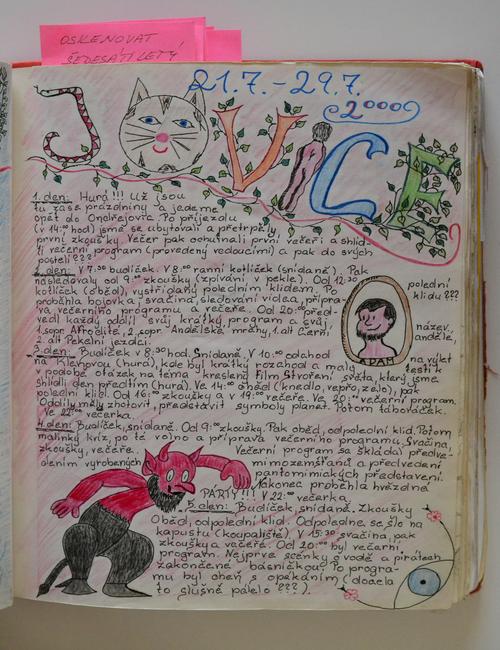 OSKENOVAT
ŠEDESÁTILETÝ
21.7.-29.7.
2000
JOVICE
1.den: Hurá!!! Už jsou
tu zase prázdniny a jedeme
opět do Ondřejovic. Po příjezdu
(v 14:00 hod) jsme se ubytovali a přetrpěly
první zkoušky. Večer pak ochutnali první večeři a shlíd-
li večerní program (provedený vedoucími) a pak do svých
postelí???
2.den: V 7:30 budíček. V 8:00 ranní kotlíček (snídaně). Pak
následovaly od 9:00 zkoušky (zpívání v pekle). Od 12:30
kotlíček (oběd), vystřídaný poledním klidem. Po polední
klidu???
proběhla bojovka, svačina, sledování videa, přípra-
va večerního programu a večeře. Od 20:00 před-
vedl každý oddíl svůj krátký program a svůj název.
1.sopr. Afrodité, 2.sopr. Andělské prdhy, 1.alt Černí andělé,
2.alt Pekelní jezdci.
3.den: Budíček v 8:30 hod. Snídaně. V 10:00 odchod na výlet
na Klenovou (hurá), kde byl krátký rozchod a malý testík
v podobě otázek na téma - kreslený film Stvoření světa, který jsme
shlídli den předtím (hurá). Ve 14:00 oběd (knedlo, vepřo, zelo), pak
polední klid. Od 16:00 zkoušky a v 19:00 večeře. Ve 20:00 večerní program.
Oddíly měly zhotovit, představit symboly planet. Potom táboráček.
Ve 22:00 večerka.
ADAM
4.den: Budíček, snídaně. Od 9:00 zkoušky. Pak oběd, odpolední klid. Potom
malinký kvíz, po té volno a příprava večerního programu. Svačina,
zkoušky, večeře. Večerní program se skládal předve-
dením vyrobených mimozemšťanů a předvedení
pantomimických představení.
Nakonec proběhla hvězdná
PÁRTY!!! V 22:00 večerka.
5.den: Budíček, snídaně. Zkoušky
Oběd, odpolední klid. Odpoledne se šlo na
kapustu (koupaliště). V 15:30 svačina, pak
zkoušky a večeře. Od 20:00 byl večerní
program. Nejprve scénky o vodě a pirátech
zakončené básničkou. Po progra-
mu byl oheň s opékáním (docela
to slušně pálelo???).